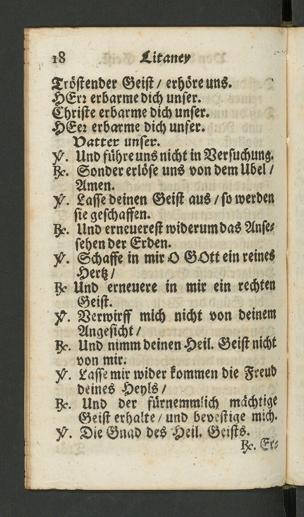 18 Litaney
Tröstender Geist / erhöre uns.
HErr erbarme dich unser.
Christe erbarme dich unser.
HErr erbarme dich unser.
Vatter unser.
℣. Und führe uns nicht in Versuchung.
℞. Sonder erlöse uns von dem Übel /
Amen.
℣. Lasse deinen Geist aus / so werden
sie geschaffen.
℞. Und erneuerest widerum das Anse-
sehen der Erden.
℣. Schaffe in mir O GOtt ein reines
Hertz /
℞ Und erneuere in mir ein rechten
Geist.
℣. Verwirff mich nicht von deinem
Angesicht /
℞. Und nimm deinen Heil. Geist nicht
von mir.
℣. Lasse mir wider kommen die Freud
deines Heyls /
℞. Und der fürnemmlich mächtige
Geist erhalte / und bevestige mich.
℣. Die Gnad des Heil. Geists.
℞. Er-